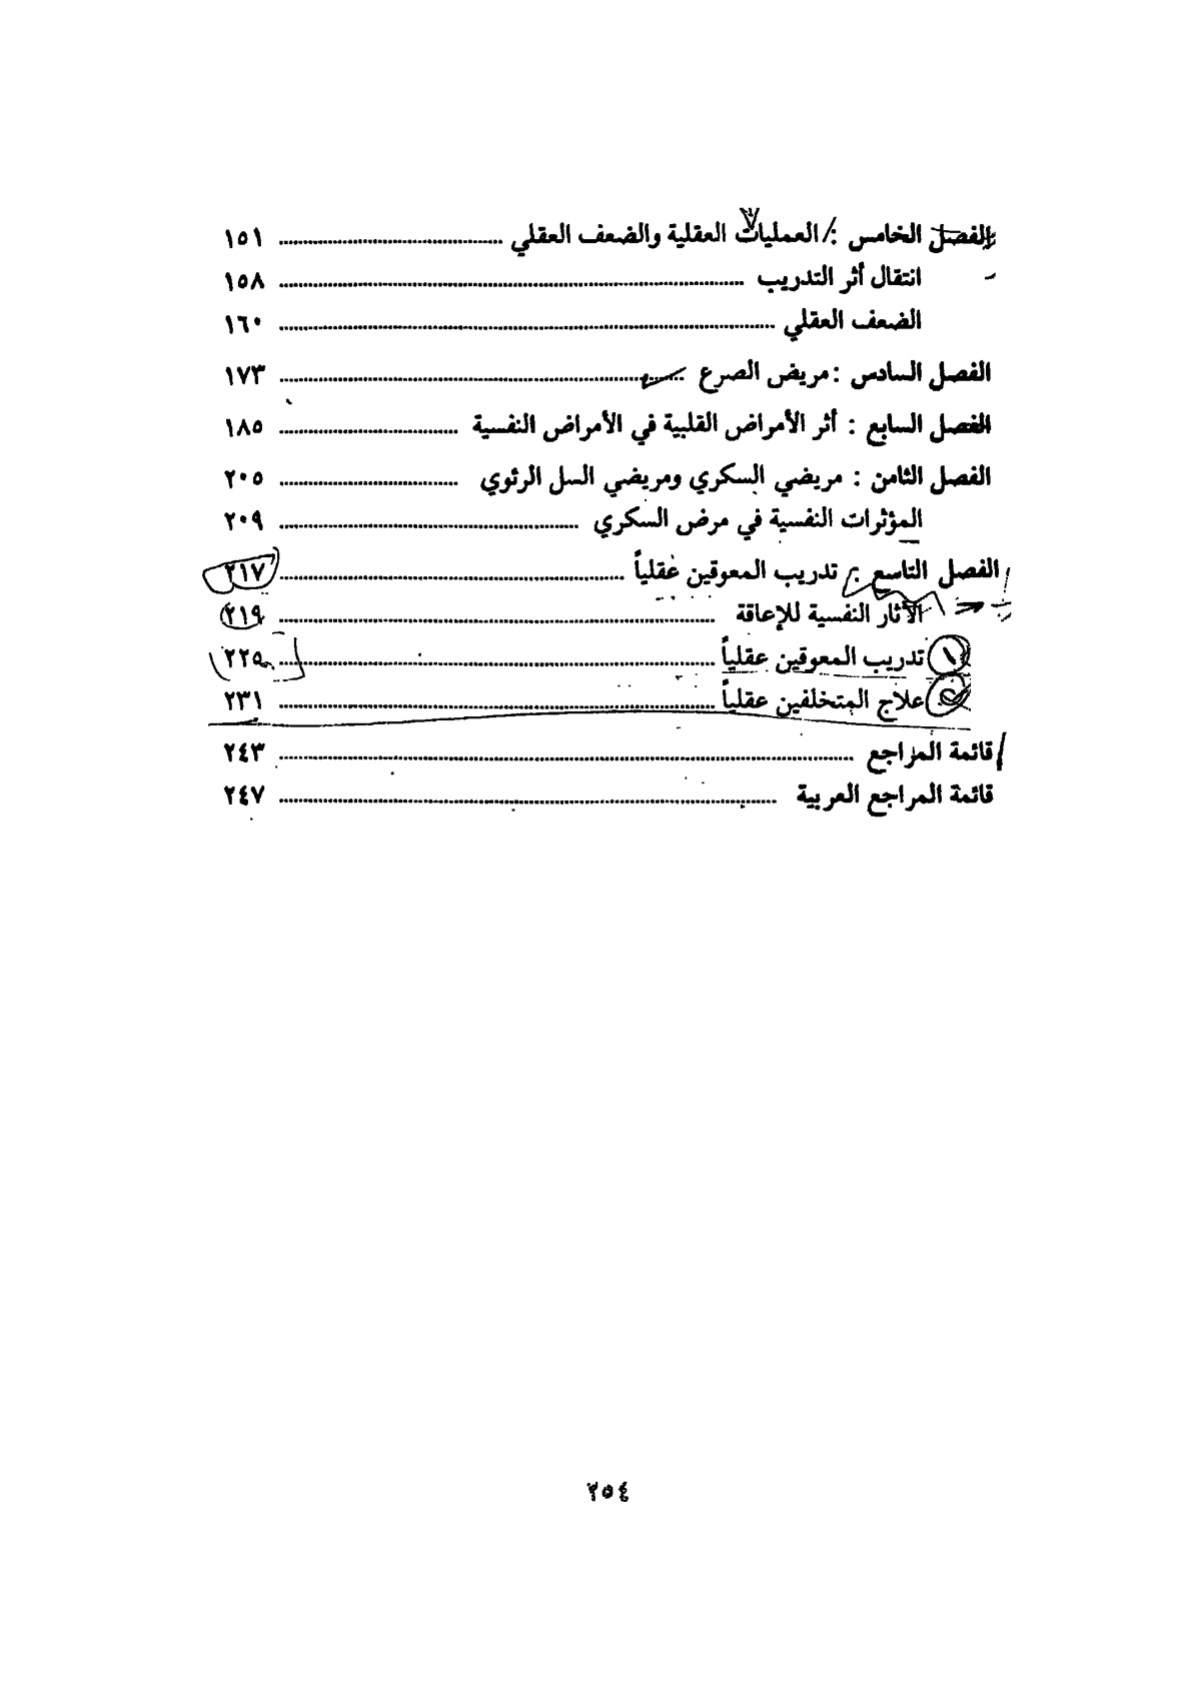 الفصل الخامس : العمليات العقلية والضعف العقلي ........ ١٥١
انتقال أثر التدريب ........ ١٥٨
الضعف العقلي ........ ١٦٠
الفصل السادس : مريض الصرع ........ ١٧٣
الفصل السابع : أثر الأمراض القلبية في الأمراض النفسية ........ ١٨٥
الفصل الثامن : مريضي السكري ومريضي السل الرئوي ........ ٢٠٥
المؤثرات النفسية في مرض السكري ........ ٢٠٩
الفصل التاسع : تدريب المعوقين عقلياً ........ ٢١٧
الآثار النفسية للإعاقة ........ ٢١٩
١ تدريب المعوقين عقلياً ........ ٢٢٥
علاج المتخلفين عقلياً ........ ٢٣١
قائمة المراجع ........ ٢٤٣
قائمة المراجع العربية ........ ٢٤٧
٢٥٤